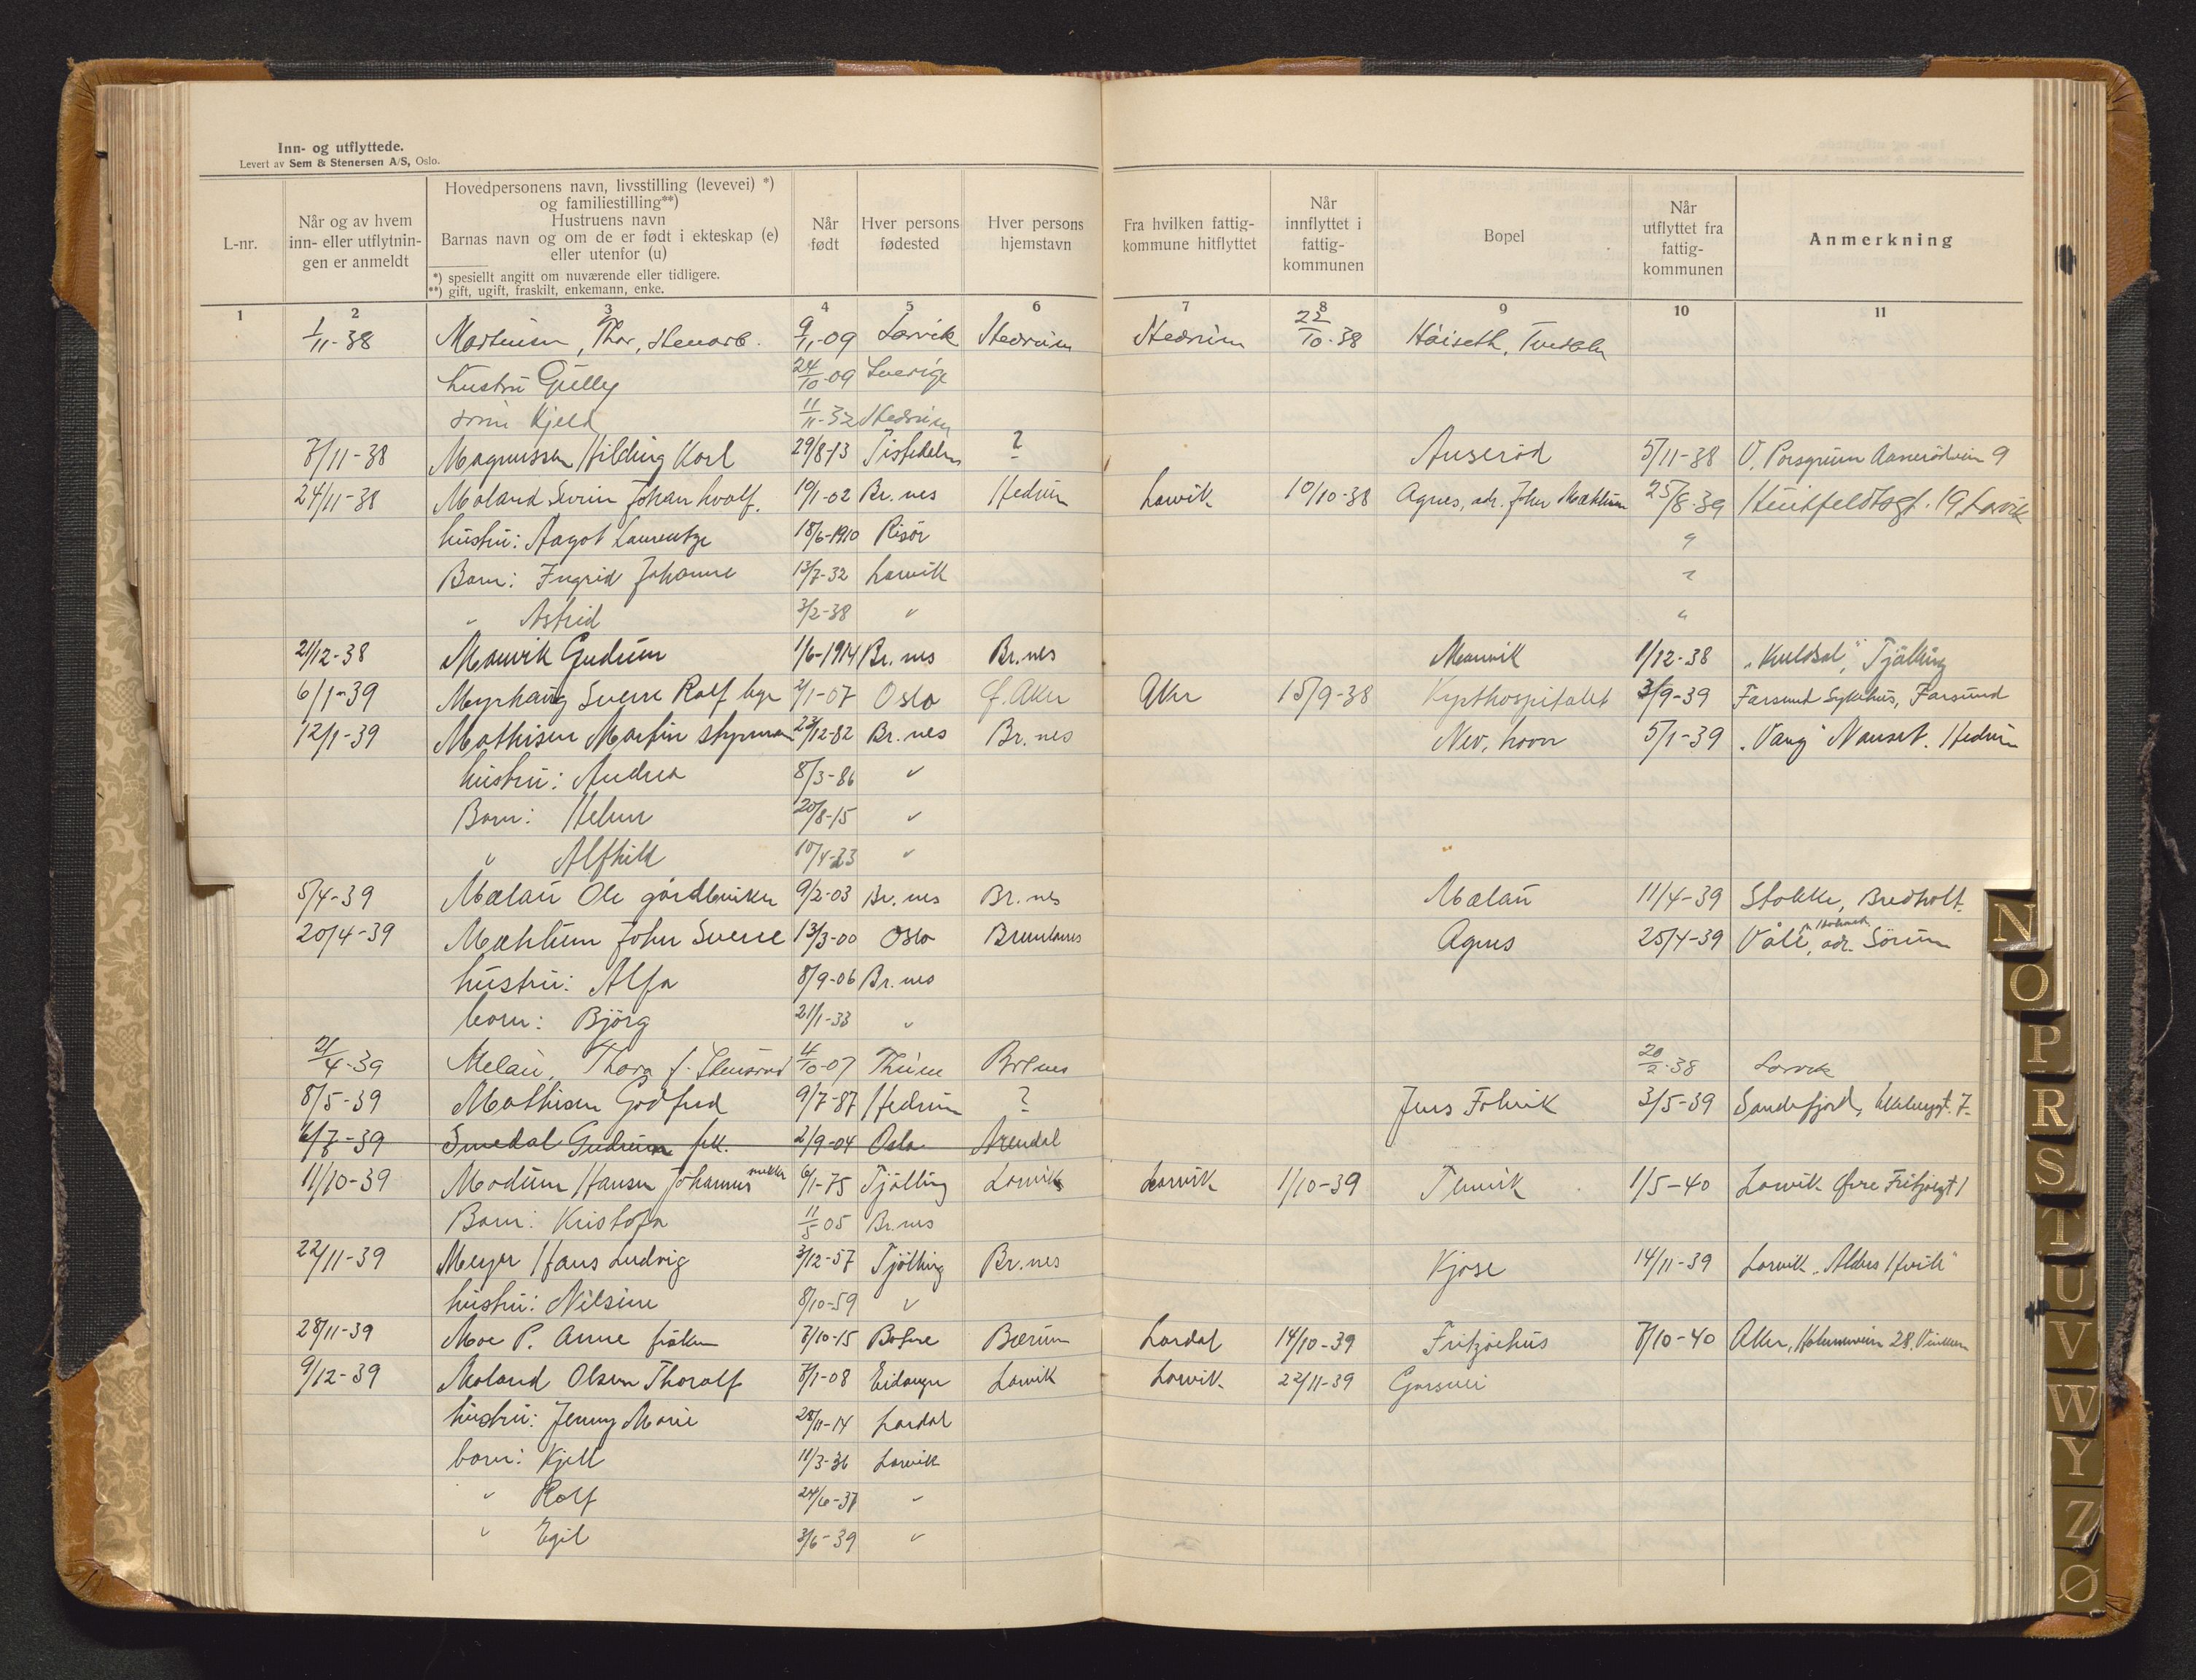 Inn- og utflyttede.
Levert av Sem & Stenersen A/S, Oslo.
L-nr.
Når og av hvem inn- eller utflytnin-gen er anmeldt
Hovedpersonens navn, livsstilling (levevei) *)
og familiestilling**)
Hustruens navn
Barnas navn og om de er født i ekteskap (e)
eller utenfor (u)
*) spesielt angitt om nuværende eller tidligere.
**) gift, ugift, fraskilt, enkemann, enke.
Når født
Hver persons fødested
Hver persons hjemstavn
Fra hvilken fattig-kommune hitflyttet
Når innflyttet i fattig-kommunen
Bopel
Når utflyttet fra fattig-kommunen
Anmerkning
1 2 3 4 5 6 7 8 9 10 11
1/11-38 Martinsen, Thor, Stenarb. 9/11-09 Larvik Hedrum Hedrum 25/10-38 Håiseth, Tvedalen
hustru Gully 24/10-09 Sverige
sønn Kjeld 11/11-32 Hedrum
7/11-38 Magnussen Hilding Karl 29/8-13 Tistedalen ? Auserød 5/11-38 V. Porsgrunn 9
24/11-38 Moland Johan 10/1-02 Br.nes Hedrum Larvik 10/10-38 Agnes, adr. John Mæhlum 25/8-39 Huitfeldtsgt. 19 Larvik
hustru: Aagot Laurentze 18/6-1910 Risör "
Barn: Ingrid Johanne 13/7-32 Larvik "
" Astrid 3/2-38 " "
21/12-38 Manvik Gudrun 1/6-1914 Br.nes Br.nes Manvik 1/12-38 Tjølling
6/1-39 Myrhaug Sverre Rolf 2/1-07 Oslo f. Aker Aker 15/9-38 Kysthospitalet 3/9-39 Farsund Sykehus, Farsund
12/1-39 Mathisen Martin styrmann 23/12-82 Br.nes Br.nes Nev. havn 5/1-39 "Vang" Nanset. Hedrum
hustru: Andrea 8/3-86 "
Barn: Helene 20/8-15 "
" Alfhild 10/4-23 "
5/4-39 Mælau Ole gårdbruker 9/2-03 Br.nes Br.nes Mælau 11/4-39 Stokke, Bredholt
20/4-39 Mæhlum John Sverre 13/3-00 Oslo Brunlanes Agnes 25/4-39 Våle, adr. Sörum
hustru: Alfa 8/9-06 Br.nes
barn: Björg 21/1-33 "
21/4-39 Melau, Thora f. 4/10-07 Br.nes 20/2-38 Larvik
8/5-39 Mathisen Godfred 9/7-87 Hedrum ? Jens Folvik 3/5-39 Sandefjord, 7
6/7-39 Smedal Gudrun frk. 2/9-04 Oslo Arendal
11/10-39 Modum Hansen Johannes 6/1-75 Tjölling Larvik Larvik 1/10-39 Tenvik 1/5-40 Larvik Øvre Fritzøegt 1
Barn: Kristofa 11/5 05 Br.nes
22/11-39 Meyer Hans Ludvig 3/12-57 Tjölling Br.nes Kjose 14/11-39 Larvik "Alders Hvile"
hustru: Nilsine 8/10-59 "
28/11-39 Moe P. Anne fröken 7/10-15 Botne Bærum Lardal 14/10-39 Fritzöehus 7/10-40 Aker, 28. Vinderen
9/12-39 Moland Olsen Thoralf 7/1-08 Eidanger Larvik Larvik 22/11-39
hustru: Jenny Marie 28/11-14 Lardal
barn: Kjell 11/3-36 Larvik
" Rolf 24/6-37 "
" Egil 3/6-39 "
N
O
P
R
S
T
U
V
W
Y
Z
Ø